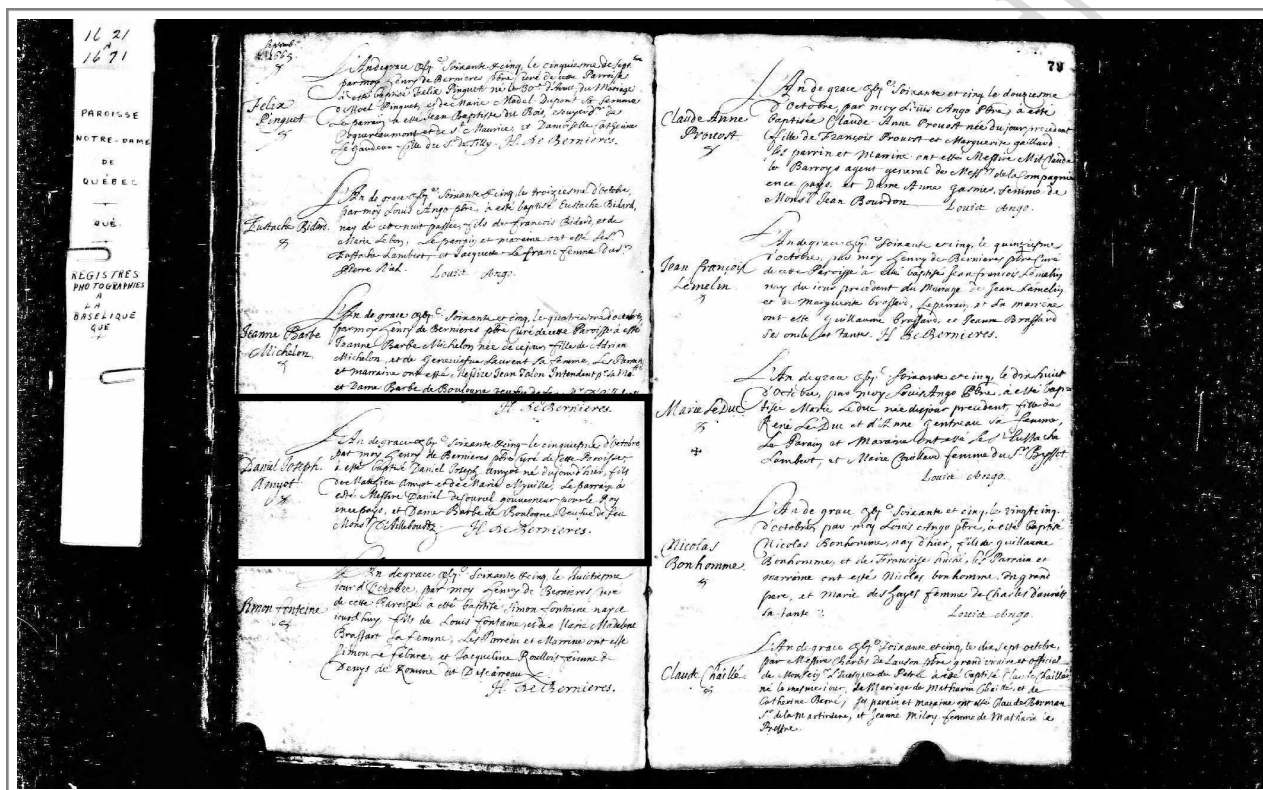 16 21
A
16 71
PAROISSE
NOTRE-DAME
DE
QUÉBEC
QUÉ.
REGISTRES
PHOTOGRAPHIES
A
LA
BASELIQUE
QUÉ
1665.
Felix
Pinguet
L'An de grace Soixante et cinq, le cinquiesme de Sept
par moy Henry de Bernieres pbre curé de cette Parroisse
à esté baptisé Felix Pinguet né le d'Aout, du Mariage
de Noel Pinguet, et de Marie Madel Dupont sa femme
Le parrain a esté Jean Baptiste du Bois, escuyer
et de St Maurice, et Damoiselle Catherine
Le Gardeur fille du Sr de Tilly. H. de Bernieres.
Eustache Bidard.
L'An de grace Soixante et cinq, le troiziesme d'octobre,
par moy Louis Ango pbre, à esté baptisé Eustache Bidard,
nay de cette nuit passée, fils de francois Bidard, et de
Marie Lebon, Le parrain et maraine ont esté le Sr
Eustache Lambert, et Jacquette Le franc femme du
Pierre
Louis Ango.
Jeanne Barbe
Michelon
L'An de grace Soixante et cinq, le quatriesme d'octobre,
par moy Henry de Bernieres pbre curé de cette Paroisse à esté
Jeanne Barbe Michelon née de ce jour, fille de Adrian
Michelon, et de Geneviefue Laurent sa femme, Les Parrain
et marraine ont esté, Messire Jean Talon Intendant pr sa Ma
et Dame Barbe de Boulogne
H. de Bernieres.
Daniel Joseph
Amyot
L'An de grace Soixante et cinq le cinquiesme d'Octobre
par moy Henry de Bernieres pbre curé de cette Paroisse
à esté baptisé Daniel Joseph Amyot né du jourd'hier, fils
de Mathieu Amyot et de Marie Myville, Le parrain à
esté Messire Daniel de Courcel gouverneur pour le Roy
en ce pays, et Dame Barbe de Boulogne veufue de feu
Monsr D'Ailleboudtz H. de Bernieres.
Simon fonteine
L'An de grace Soixante et cinq, le huitiesme
jour d'Octobre, par moy Henry de Bernieres curé
de cette Paroisse à esté baptisé Simon fontaine nay ce
jourd'huy fils de Louis fontaine, et de Marie Madelene
Brassart sa femme, Les Parrein et Marrine ont esté
Simon le febure, et Jacqueline Roullois femme de
Denys de Romme dit Descarreaux
H. de Bernieres.
79
Claude Anne
Prouost
L'An de grace Soixante et cinq le douziesme
d'Octobre, par moy Louis Ango Pbre, à esté
baptisée Claude Anne Prouost née du jour precedent
fille de François Prouost et Marguerite gaillard
Les parrin et Marrine ont esté Messire
le Barroys agent general de Messrs de la Compagnie
en ce pays, et Dame Anne Gasnier, femme de
Monsr Jean Bourdon Louis Ango.
Jean françois
Lemelin
L'An de grace Soixante et cinq, le quinziesme
d'octobre, par moy Henry de Bernieres pbre Curé
de cette Paroisse à esté baptisé Jean francois Lemelin
nay du jour precedent du Mariage de Jean Lemelin
et de Marguerite brassard, Le parrain, et la marrene
ont esté Guillaume Brassard, et Jeanne Brassard
ses oncle et tante. H. de Bernieres.
Marie Le Duc
L'An de grace Soixante et cinq, le dixhuict
d'Octobre, par moy Louis Ango Pbre, à esté bap-
tisée Marie Le Duc née du jour precedent, fille de
René Le Duc et d'Anne Gentreau sa femme,
Le Parain et Maraine ont esté le Sr Eustache
Lambert, et Marie femme du Sr
Louis Ango.
Nicolas
Bonhomme
L'An de grace Soixante et cinq, le vingtcinq
d'octobre, par moy Louis Ango pbre, à esté baptisé
Nicolas Bonhomme, nay d'hier, fils de guillaume
Bonhomme, et de Françoise huché, Les Parrain et
marraine ont esté Nicolas bonhomme, son grand
pere, et Marie des hayes femme de Charles
sa tante. Louis Ango.
Claude Chaillé
L'An de grace Soixante et cinq, le dix sept octobre,
par Messire Charles de Lauson pbre grand vicaire et official
de Monseigr L'Euesque de Petrée à esté baptisé Claude Chaillé
né le mesme jour, du Mariage de Mathurin Chaillé, et de
Catherine ses parain et maraine ont esté Claude Berman
Sr de la Martiniere, et Jeanne Miloy femme de Mathurin le
Prestre.